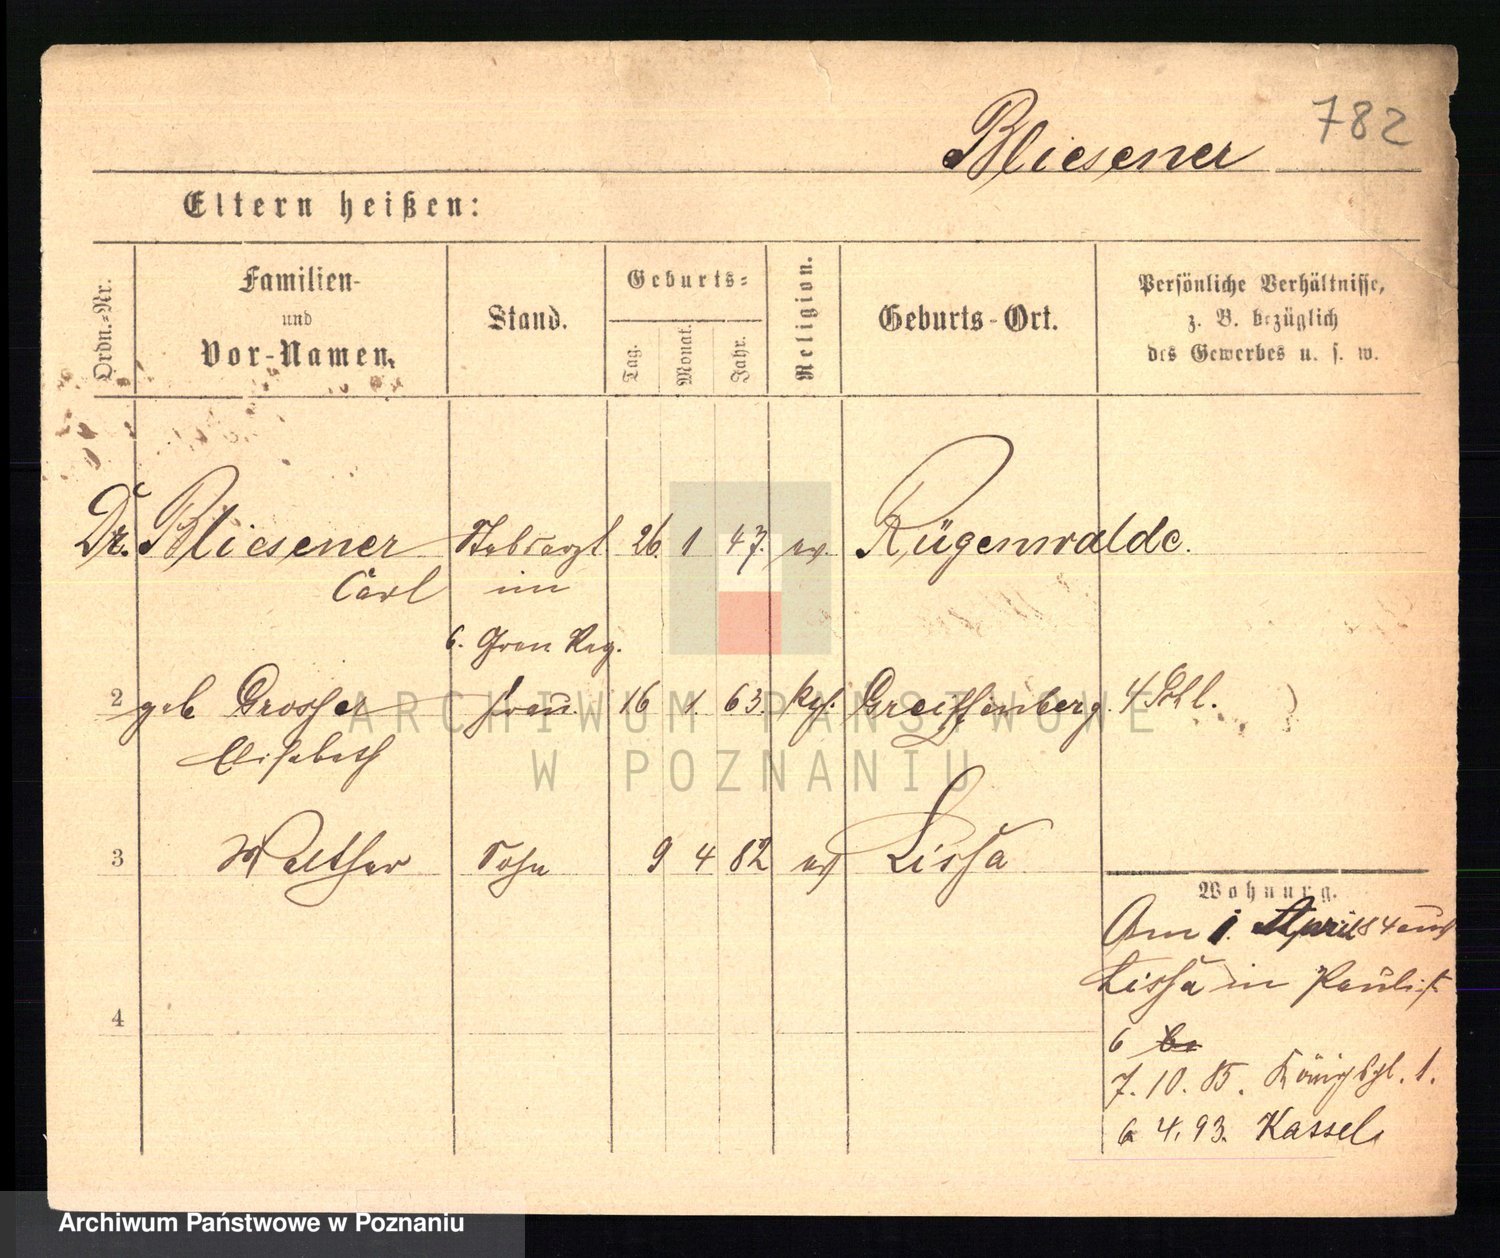 782
Bliesener
Eltern heißen:
Ordn.-Nr.
Familien-
und
Vor-Namen.
Stand.
Geburts-
Tag.
Monat.
Jahr.
Religion.
Geburts-Ort.
Persönliche Verhältnisse,
z. B. bezüglich
des Gewerbes u. s. w.
Dr. Bliesener Stabsarzt 26. 1 47. ev. Rügenwalde.
Carl im
6. Gren Reg.
2 geb Grosser Frau 16 1. 63. Greiffenberg. i/Schl.
Elisabeth
3 Walther Sohn 9 4 82 ev Lissa
Wohnung.
Am 1. April 84 aus
Lissa in Paulist
6
4
7. 10. 85. Königspl. 1.
6 4. 93. Kassel
ARCHIWUM PAŃSTWOWE
W POZNANIU
Archiwum Państwowe w Poznaniu